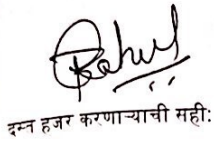 Rahul
दस्त हजर करणाऱ्याची सही: